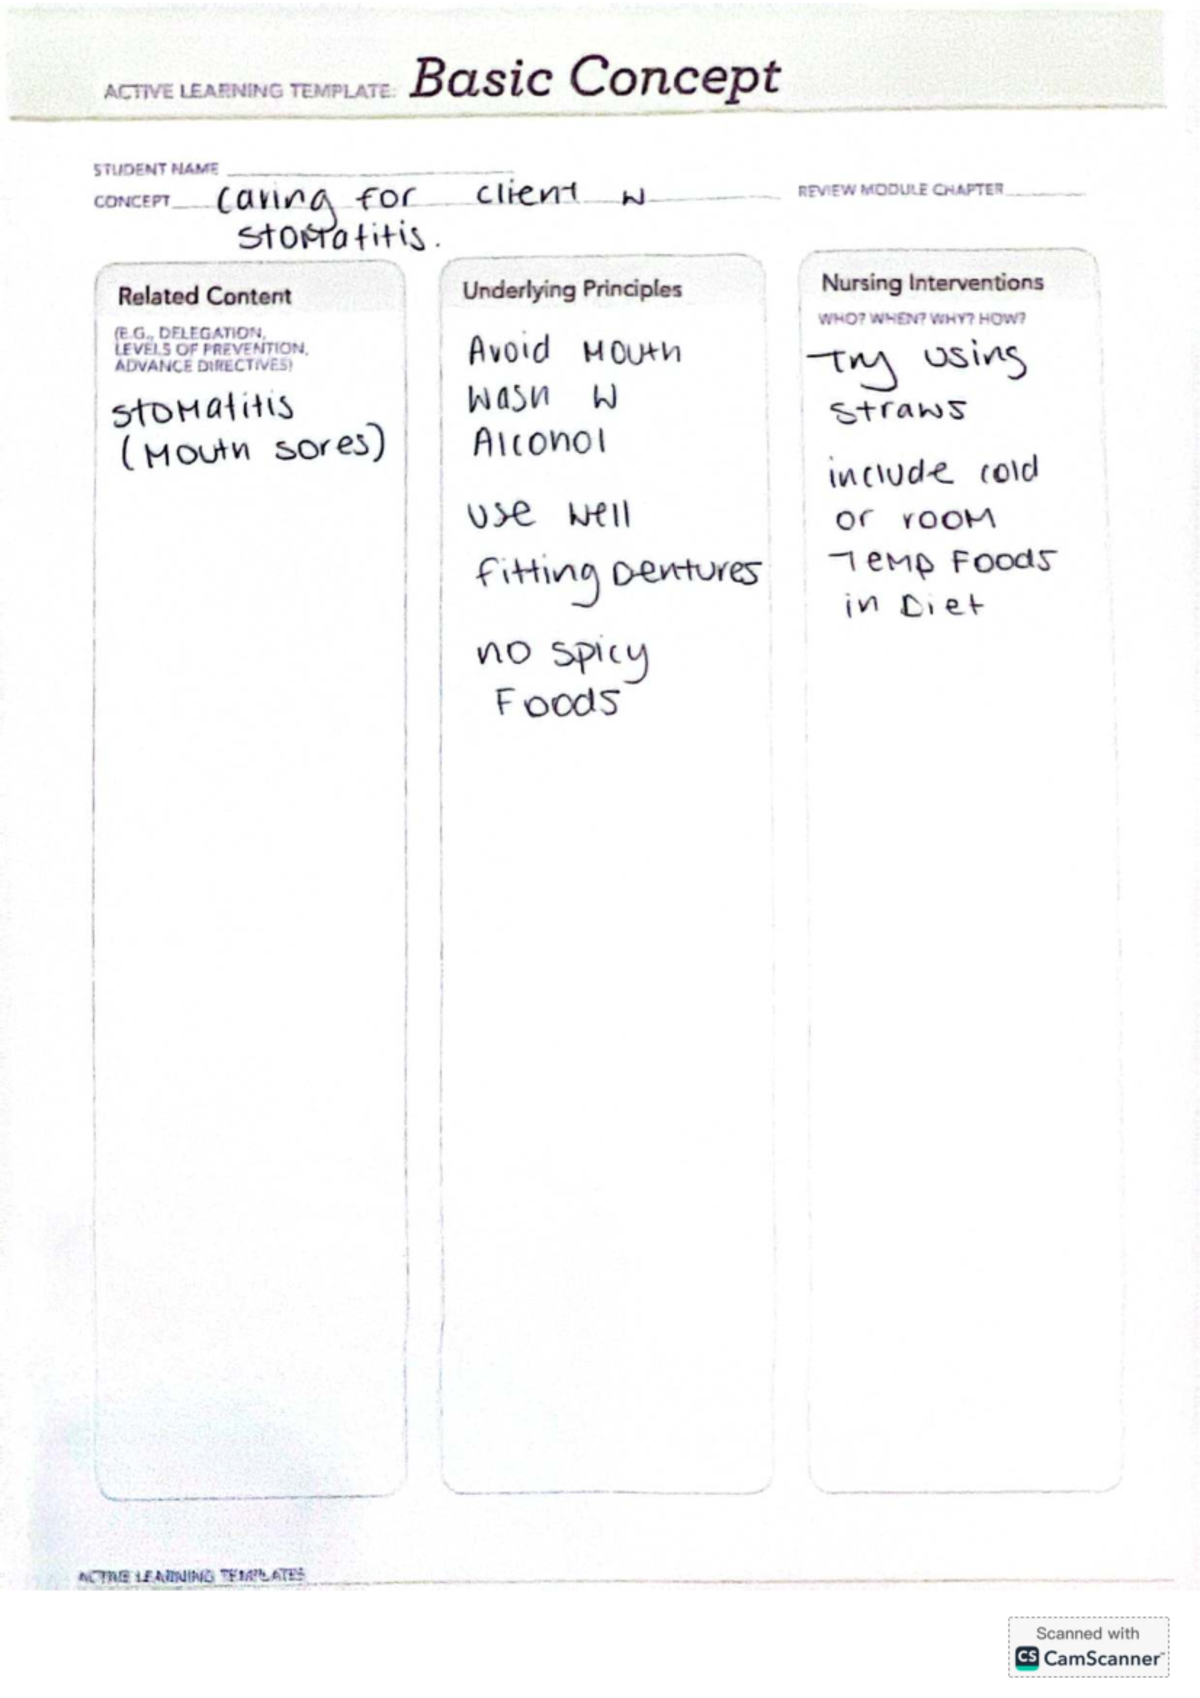 ACTIVE LEARNING TEMPLATE: Basic Concept
STUDENT NAME
CONCEPT Caring for client w
stomatitis.
REVIEW MODULE CHAPTER
Related Content
(E.G., DELEGATION,
LEVELS OF PREVENTION,
ADVANCE DIRECTIVES)
stomatitis
(Mouth sores)
Underlying Principles
Avoid Mouth
Wash W
Alcohol
use well
fitting Dentures
no spicy
Foods
Nursing Interventions
WHO? WHEN? WHY? HOW?
Try using
straws
include cold
or room
Temp Foods
in Diet
ACTIVE LEARNING TEMPLATES
Scanned with
CS CamScanner